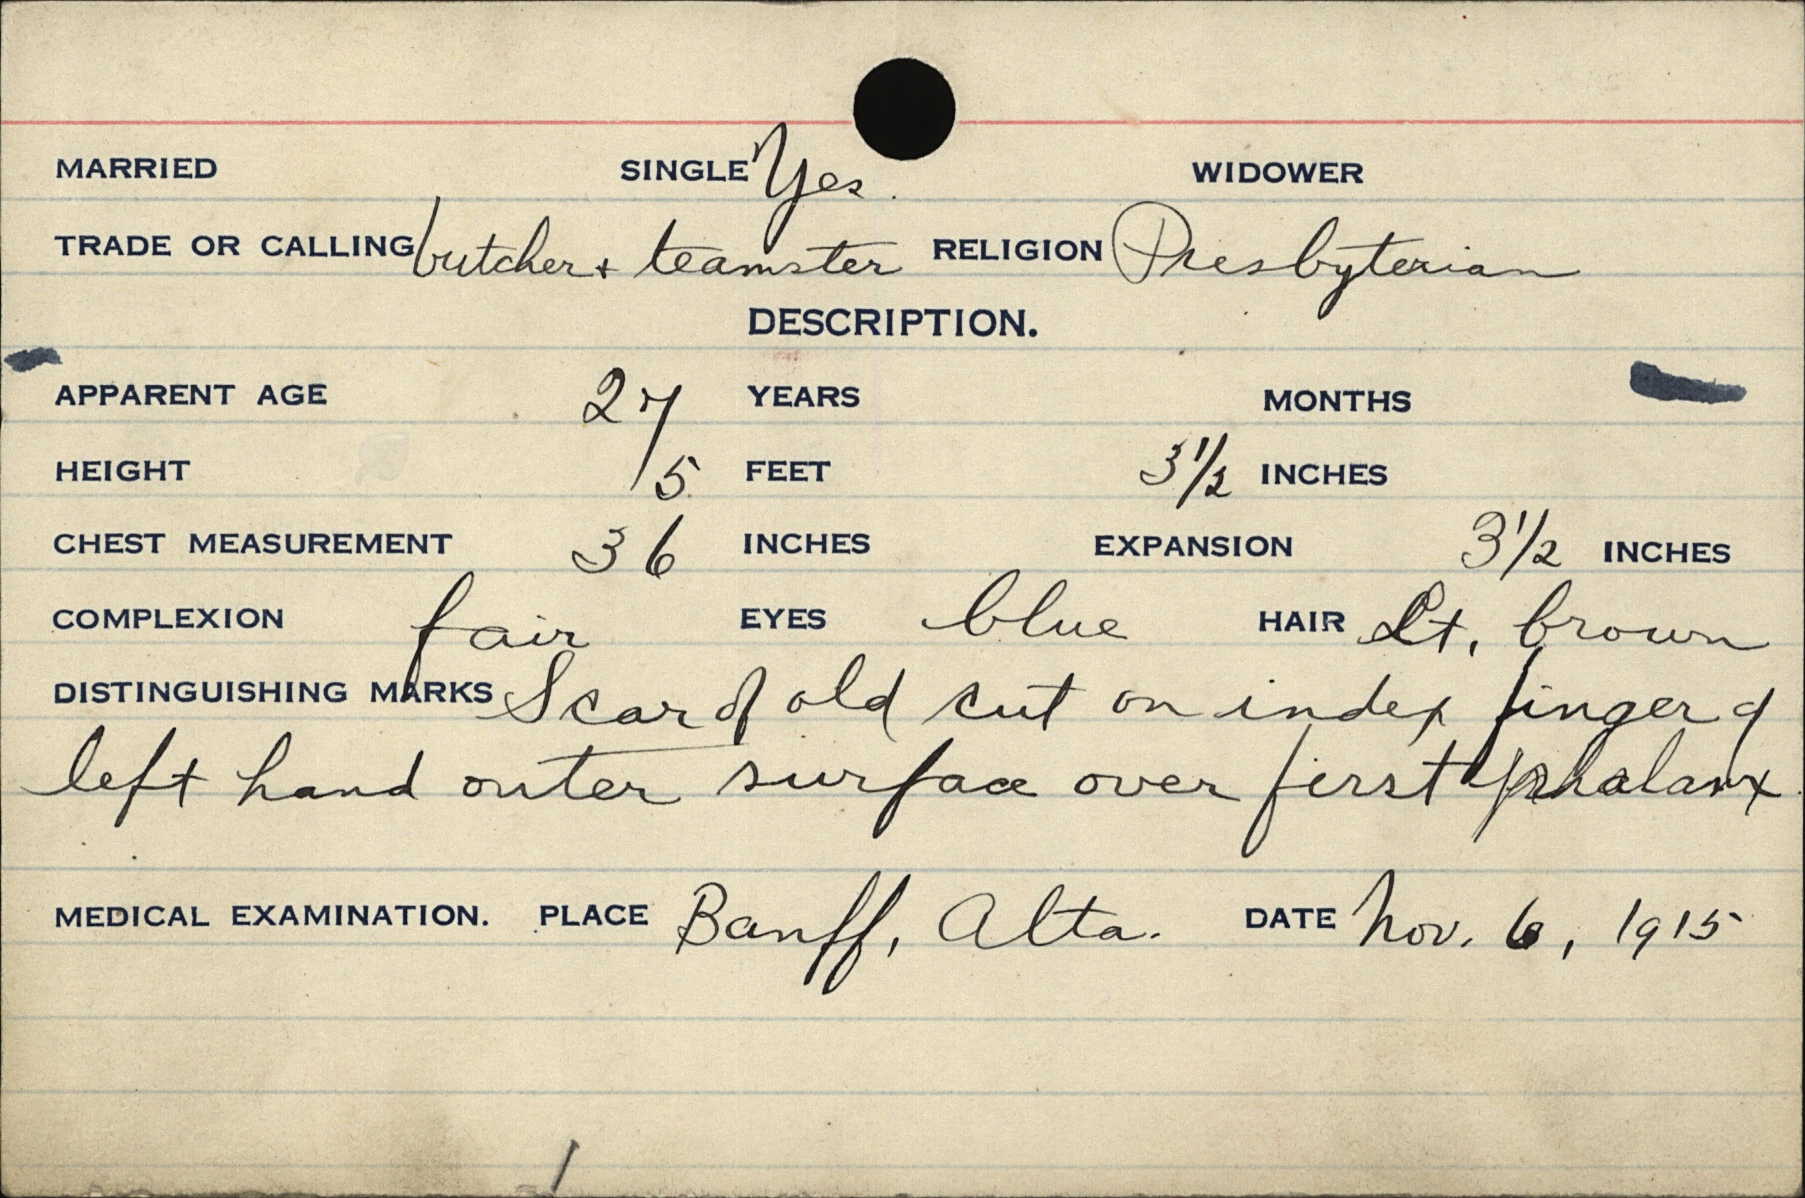 MARRIED SINGLE Yes. WIDOWER
TRADE OR CALLING butcher + teamster RELIGION Presbyterian
DESCRIPTION.
APPARENT AGE 27 YEARS MONTHS
HEIGHT 5 FEET 3 1/2 INCHES
CHEST MEASUREMENT 36 INCHES EXPANSION 3 1/2 INCHES
COMPLEXION fair EYES blue HAIR Lt. brown
DISTINGUISHING MARKS Scar of old cut on index finger of
left hand outer surface over first phalanx
MEDICAL EXAMINATION. PLACE Banff, Alta. DATE Nov. 6, 1915